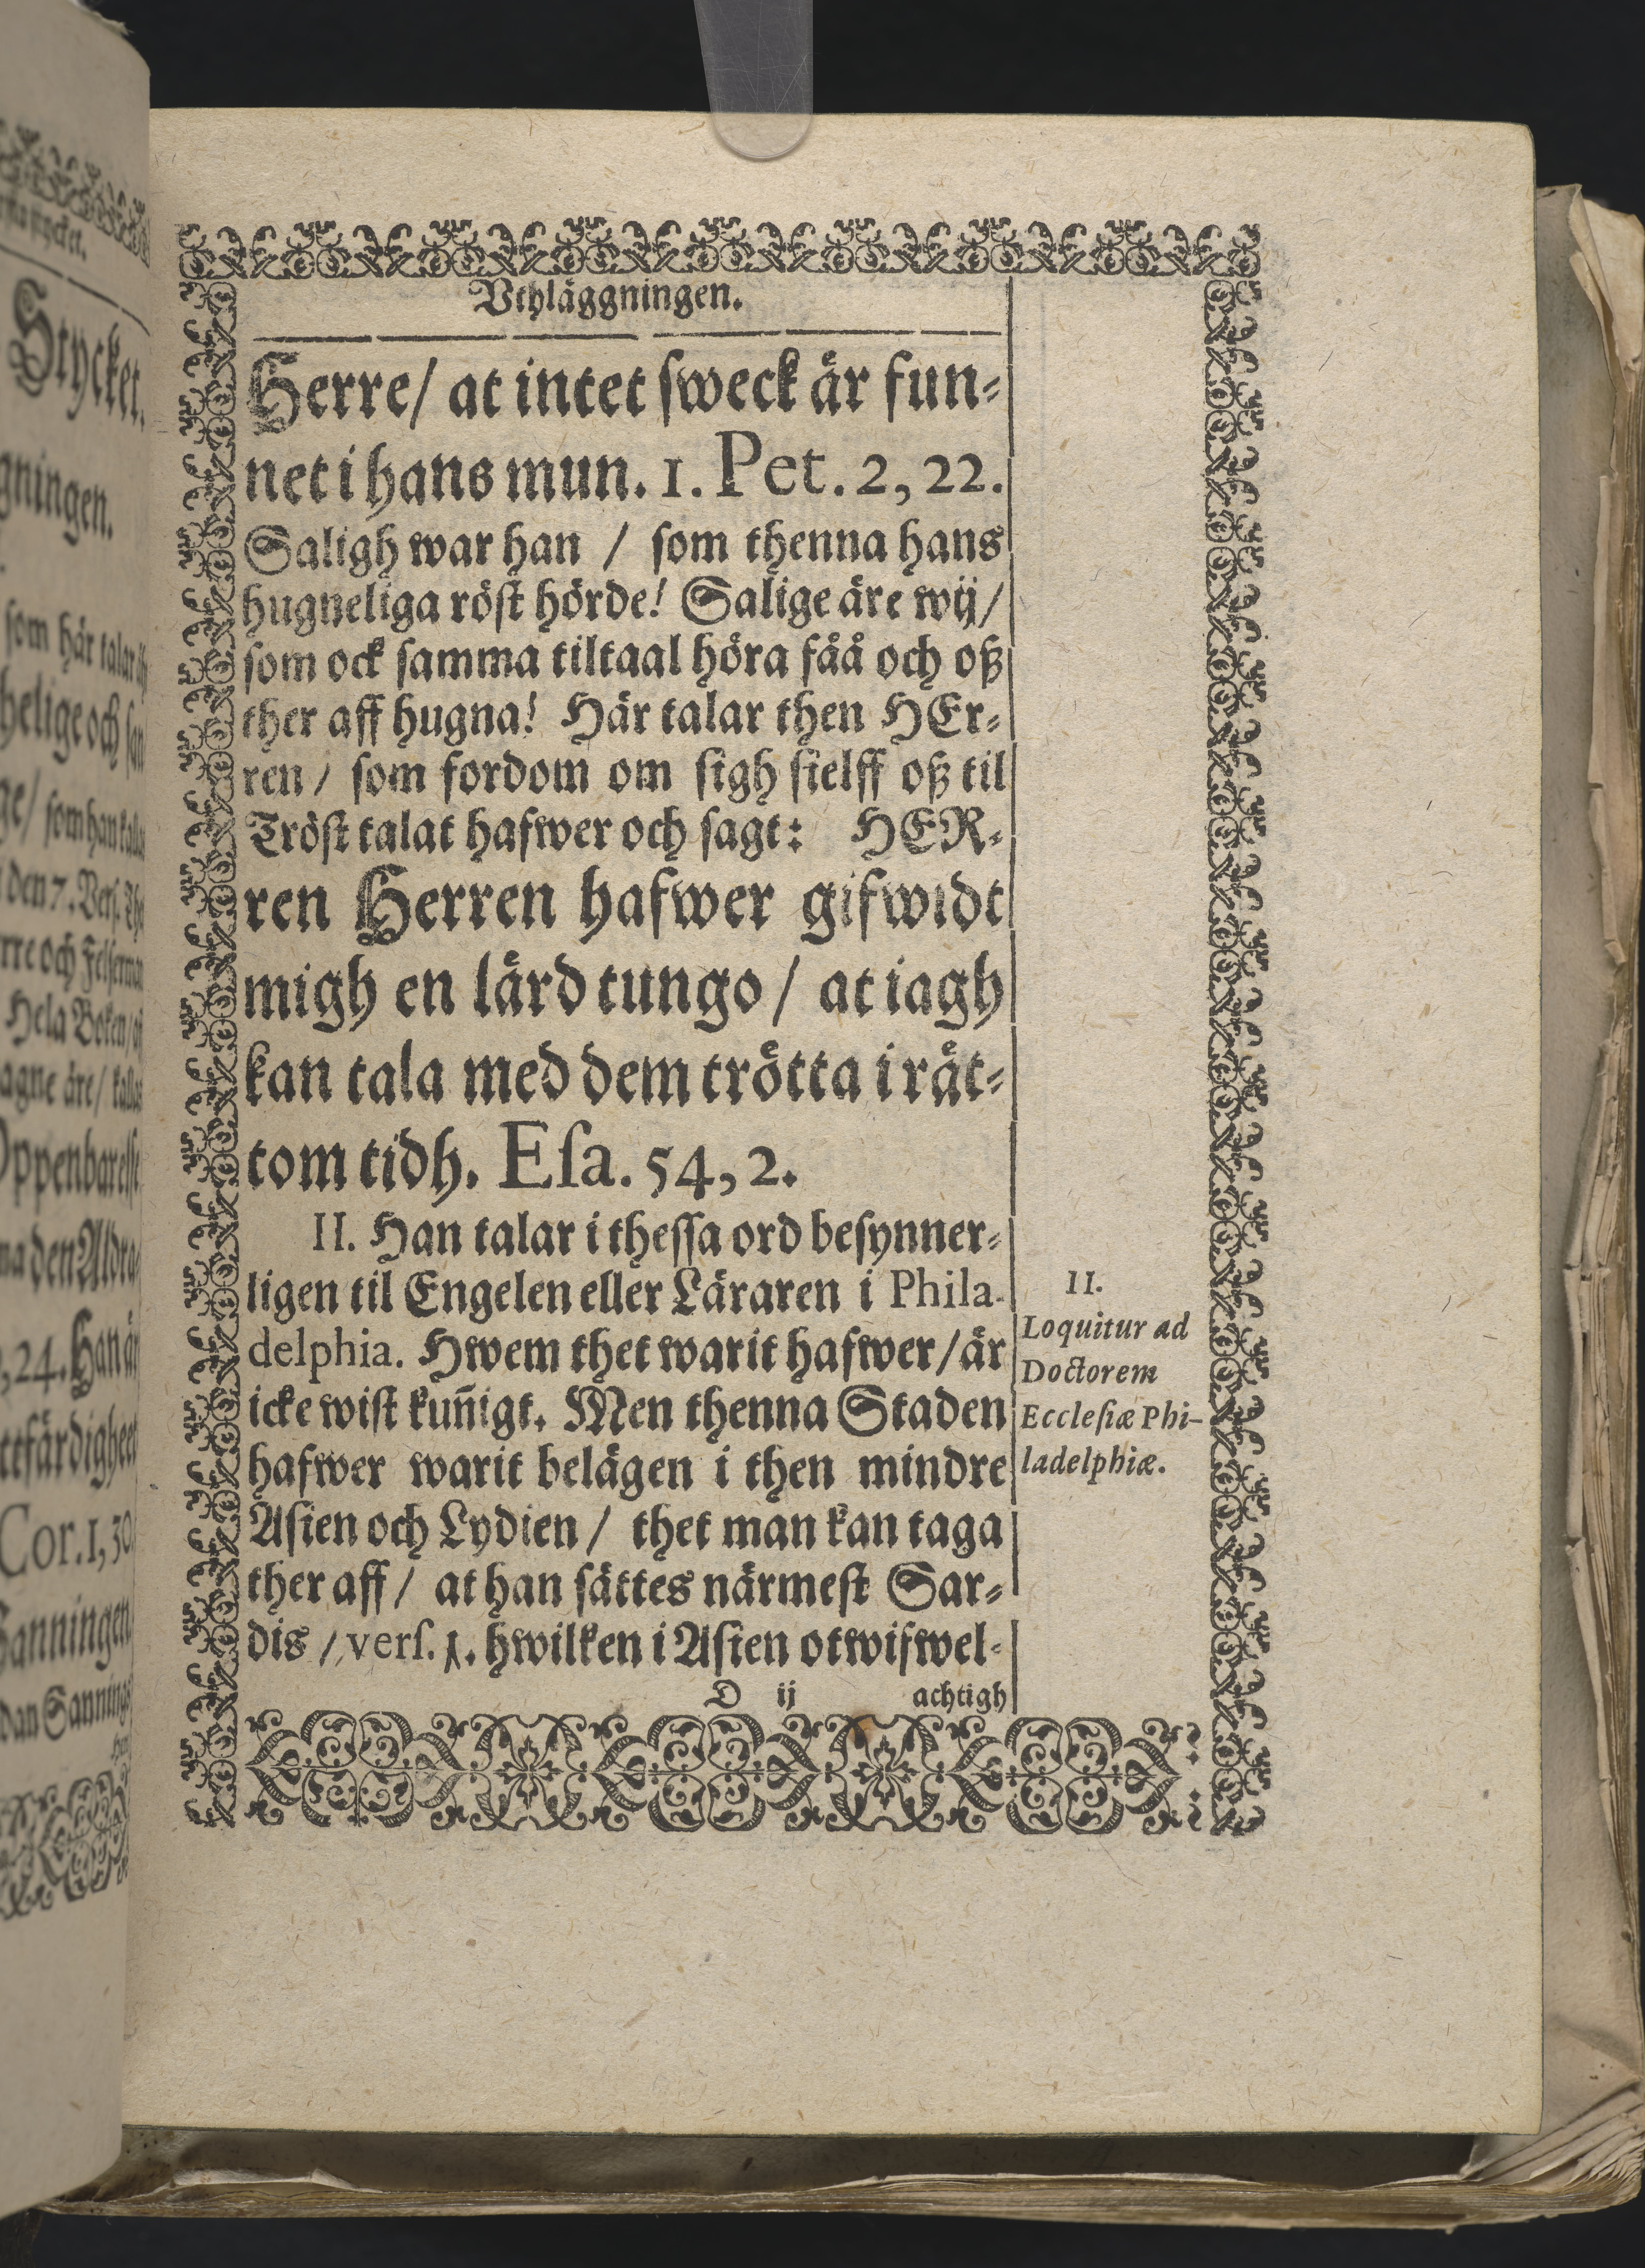 Vthläggningen.
Herre/ at intet sweck är fun-
net i hans mun. 1. Pet. 2, 22.
Saligh war han / som thenna hans
hugneliga röst hörde! Salige äre wij/
som ock samma tiltaal höra fåå och oß
ther aff hugna! Här talar then HEr-
ren / som fordom om sigh sielff oß til
Tröst talat hafwer och sagt: HER-
ren Herren hafwer gifwidt
migh en lärd tungo / at iagh
kan tala med dem trötta i rät-
tom tidh. Esa. 54, 2.
II. Han talar i thessa ord besynner-
ligen til Engelen eller Läraren i Phila-
delphia. Hwem thet warit hafwer/ är
icke wist kun̄igt. Men thenna Staden
hafwer warit belägen i then mindre
Asien och Lydien / thet man kan taga
ther aff / at han sättes närmest Sar-
dis / vers. 1. hwilken i Asien otwifwel-
D ij achtigh
II.
Loquitur ad
Doctorem
Ecclesiæ Phi-
ladelphiæ.
Stycket.
gningen.
som här talar
helige och
ge/ som han
den 7. Vers.
rre och
Hela Boken/
agne äre/
na den Aldra
, 24. Han är
ttfärdigheet
Cor. 1, 30
Sanningen
dan Sannings